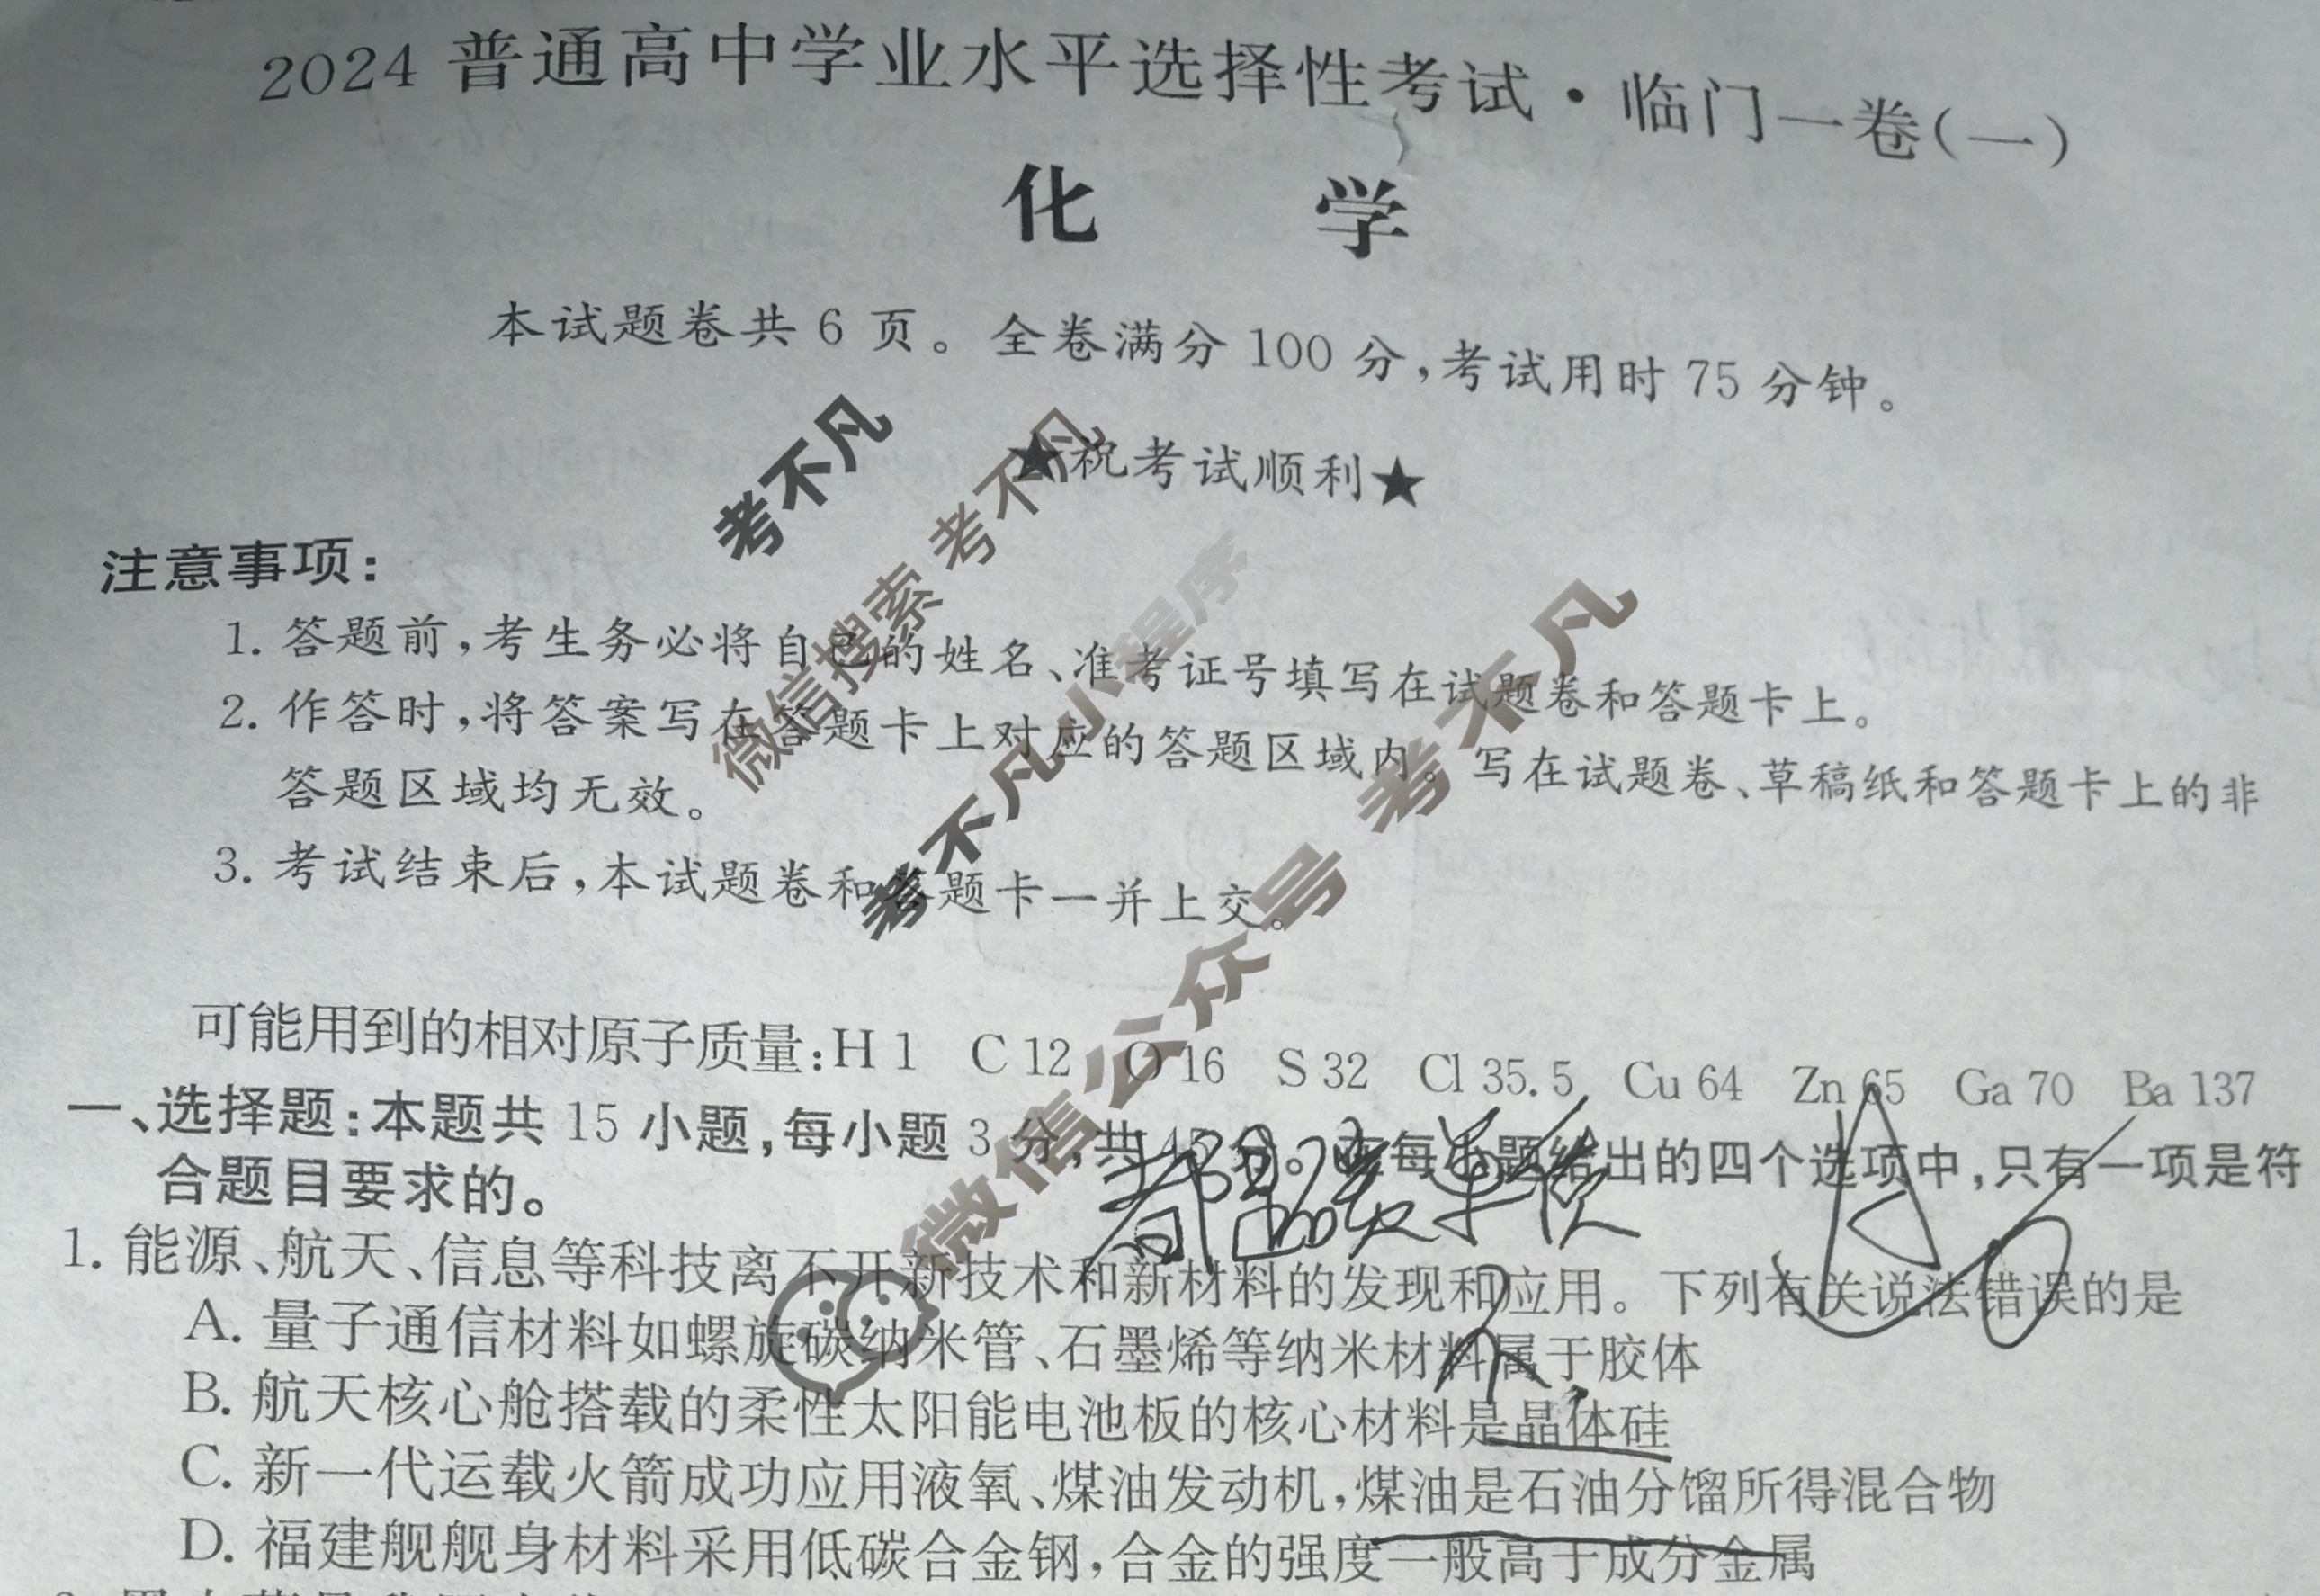 2024普通高中学业水平选择性考试·临门一卷(一)
化 学
本试题卷共6页。全卷满分100分,考试用时75分钟。
★祝考试顺利★
考不凡
微信搜索 考不凡
考不凡小程序
微信公众号 考不凡
注意事项:
1. 答题前,考生务必将自己的姓名、准考证号填写在试题卷和答题卡上。
2. 作答时,将答案写在答题卡上对应的答题区域内。写在试题卷、草稿纸和答题卡上的非
答题区域均无效。
3. 考试结束后,本试题卷和答题卡一并上交。
可能用到的相对原子质量:H 1 C 12 O 16 S 32 Cl 35.5 Cu 64 Zn 65 Ga 70 Ba 137
一、选择题:本题共15小题,每小题3分,共45分。在每小题给出的四个选项中,只有一项是符
合题目要求的。
1. 能源、航天、信息等科技离不开新技术和新材料的发现和应用。下列有关说法错误的是
A. 量子通信材料如螺旋碳纳米管、石墨烯等纳米材料属于胶体
B. 航天核心舱搭载的柔性太阳能电池板的核心材料是晶体硅
C. 新一代运载火箭成功应用液氧、煤油发动机,煤油是石油分馏所得混合物
D. 福建舰舰身材料采用低碳合金钢,合金的强度一般高于成分金属